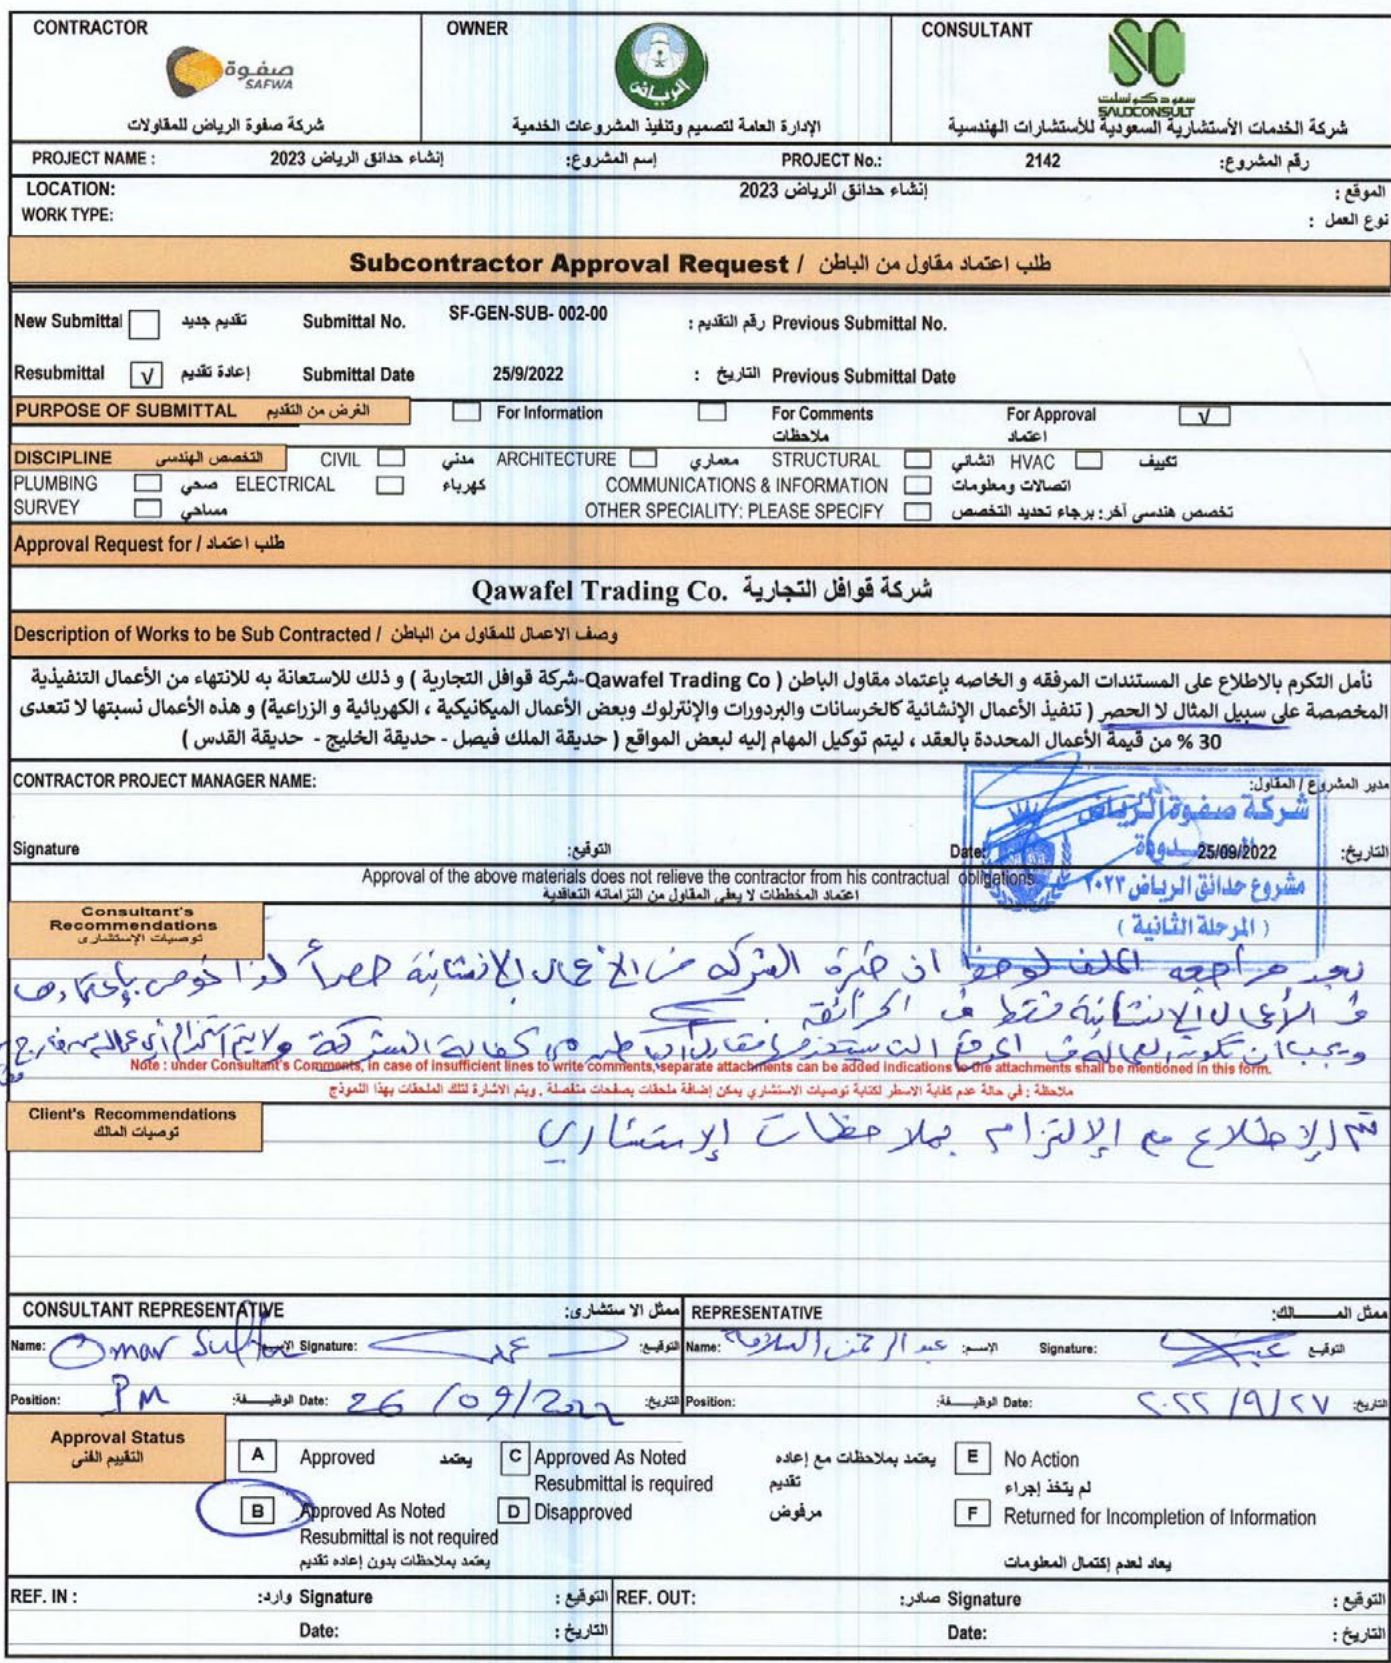 CONTRACTOR
صفوة
SAFWA
شركة صفوة الرياض للمقاولات
OWNER
الرياض
الإدارة العامة لتصميم وتنفيذ المشروعات الخدمية
CONSULTANT
SC
سعودكونسلت
SAUDCONSULT
شركة الخدمات الأستشارية السعودية للأستشارات الهندسية
PROJECT NAME : إنشاء حدائق الرياض 2023 إسم المشروع: PROJECT No.: 2142 رقم المشروع:
LOCATION: إنشاء حدائق الرياض 2023 الموقع :
WORK TYPE: نوع العمل :
Subcontractor Approval Request / طلب اعتماد مقاول من الباطن
New Submittal تقديم جديد Submittal No. SF-GEN-SUB- 002-00 رقم التقديم : Previous Submittal No.
Resubmittal √ إعادة تقديم Submittal Date 25/9/2022 التاريخ : Previous Submittal Date
PURPOSE OF SUBMITTAL الغرض من التقديم For Information For Comments For Approval √
ملاحظات اعتماد
DISCIPLINE التخصص الهندسى CIVIL مدني ARCHITECTURE معماري STRUCTURAL انشائي HVAC تكييف
PLUMBING صحي ELECTRICAL كهرباء COMMUNICATIONS & INFORMATION اتصالات ومعلومات
SURVEY مساحي OTHER SPECIALITY: PLEASE SPECIFY تخصص هندسى آخر: برجاء تحديد التخصص
Approval Request for / طلب اعتماد
Qawafel Trading Co. شركة قوافل التجارية
Description of Works to be Sub Contracted / وصف الاعمال للمقاول من الباطن
نأمل التكرم بالاطلاع على المستندات المرفقه و الخاصه بإعتماد مقاول الباطن ( Qawafel Trading Co-شركة قوافل التجارية ) و ذلك للاستعانة به للانتهاء من الأعمال التنفيذية
المخصصة على سبيل المثال لا الحصر ( تنفيذ الأعمال الإنشائية كالخرسانات والبردورات والإنترلوك وبعض الأعمال الميكانيكية ، الكهربائية و الزراعية) و هذه الأعمال نسبتها لا تتعدى
30 % من قيمة الأعمال المحددة بالعقد ، ليتم توكيل المهام إليه لبعض المواقع ( حديقة الملك فيصل - حديقة الخليج - حديقة القدس )
CONTRACTOR PROJECT MANAGER NAME: مدير المشروع / المقاول:
شركة صفوة الرياض
Signature التوقيع: Date: 25/09/2022 التاريخ:
مشروع حدائق الرياض ٢٠٢٣
( المرحلة الثانية )
Approval of the above materials does not relieve the contractor from his contractual obligations
اعتماد المخططات لا يعفى المقاول من التزاماته التعاقدية
Consultant's
Recommendations
توصيات الإستشارى
بعد مراجعه الملف لوحظ ان خبرة الشركه في الاعمال الإنشائية حصراً لذا نوصي بإعتمادها
في الأعمال الإنشائية فقط في الحدائق
ويجب ان تكون العمالة في الموقع التي سيستخدمها مقاول الباطن من كفالة الشركة ولا يتم استخدام أي عمالة من خارج
Note : under Consultant's Comments, in case of insufficient lines to write comments, separate attachments can be added indications to the attachments shall be mentioned in this form.
ملاحظة : في حالة عدم كفاية الاسطر لكتابة توصيات الاستشاري يمكن إضافة ملحقات بصفحات منفصلة , ويتم الاشارة لتلك الملحقات بهذا النموذج
Client's Recommendations
توصيات المالك
تم الإطلاع مع الإلتزام بملاحظات الإستشاري
CONSULTANT REPRESENTATIVE ممثل الا ستشارى: REPRESENTATIVE ممثل المــــالك:
Name: Omar الإسم Signature: التوقيع: Name: عبد الرحمن السلامة الإسم: Signature: التوقيع
Position: PM الوظيـــفة: Date: 26/09/2022 التاريخ: Position: الوظيـــفة: Date: ٢٠٢٢/٩/٢٧ التاريخ:
Approval Status
التقييم الفنى
A Approved يعتمد
B Approved As Noted
Resubmittal is not required
يعتمد بملاحظات بدون إعاده تقديم
C Approved As Noted يعتمد بملاحظات مع إعاده
Resubmittal is required تقديم
D Disapproved مرفوض
E No Action
لم يتخذ إجراء
F Returned for Incompletion of Information
يعاد لعدم إكتمال المعلومات
REF. IN : وارد: Signature التوقيع : REF. OUT: صادر: Signature التوقيع :
Date: التاريخ : Date: التاريخ :